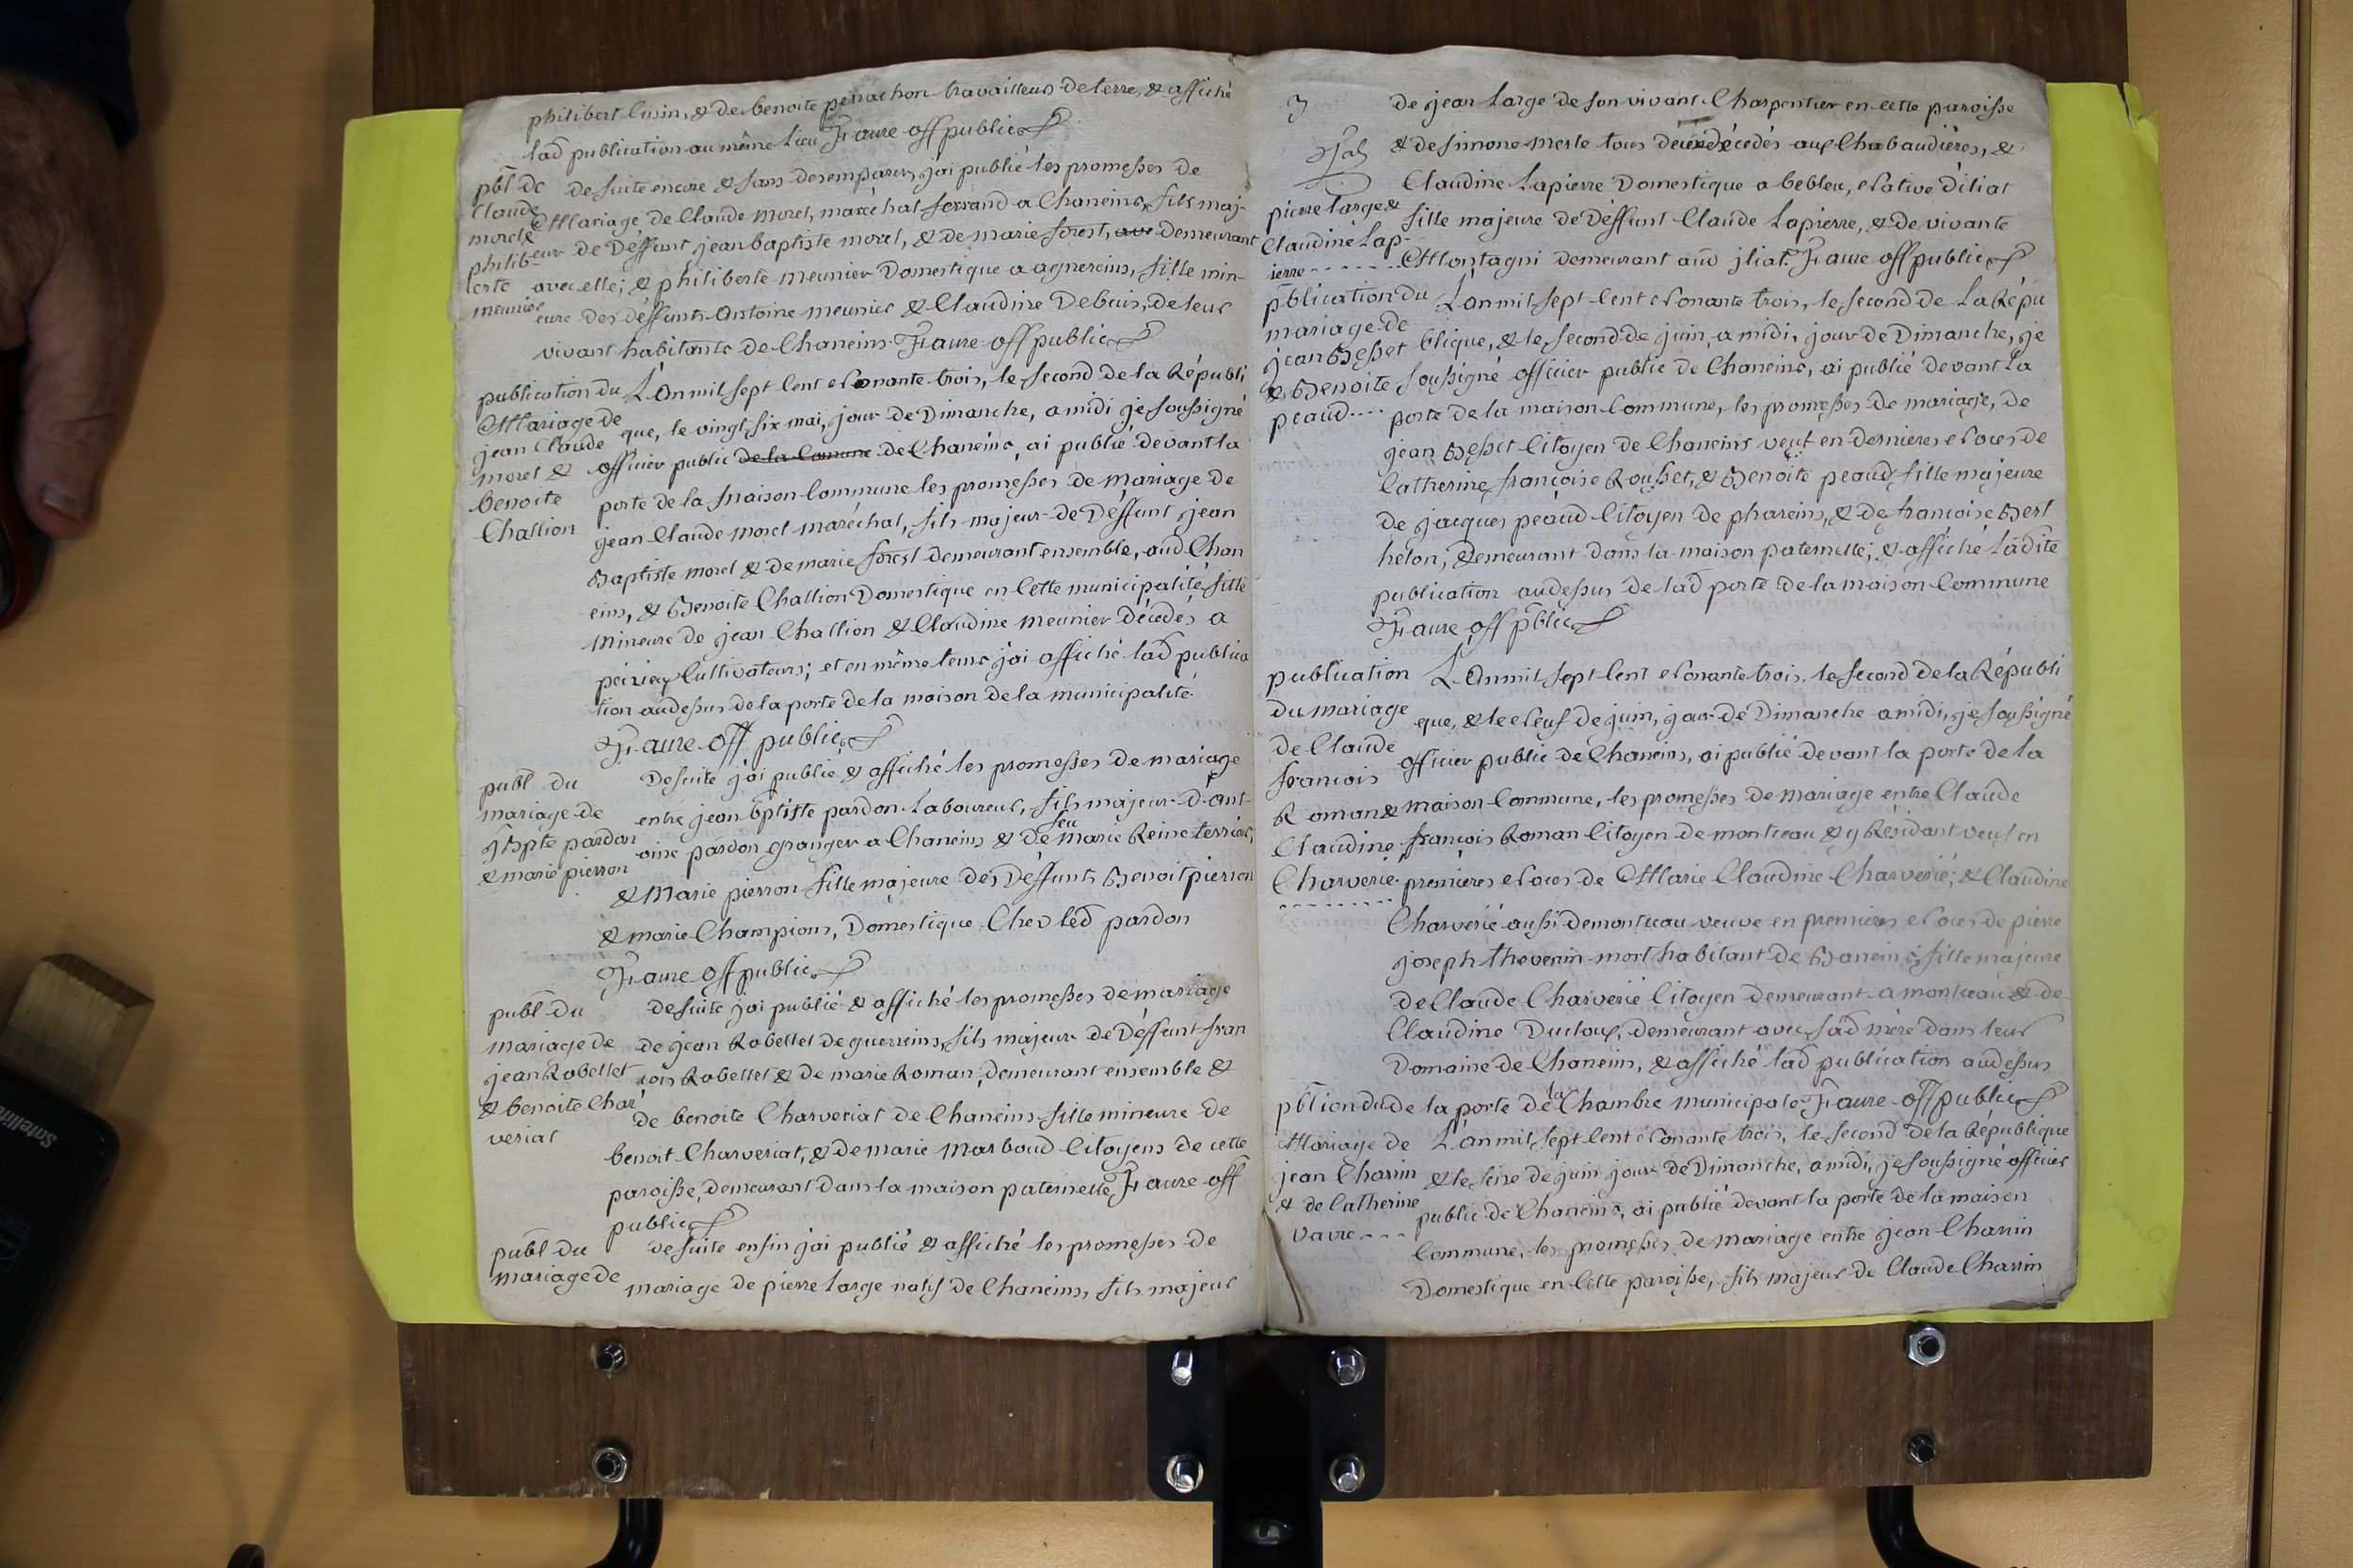 philibert Cusin, & de benoite perrachon travailleurs de terre, & affiché
lad publication au même lieu Faure off public
pbl de
Claude
morel &
philib-
erte
meunier
de suite encore & sans desemparer, j'ai publié les promesses de
Mariage de Claude morel, maréchal ferrand a Chaneins, fils maj-
eur de Déffunt jean baptiste morel, & de marie forest, ave demeurant
avec elle; & philiberte meunier Domestique a agnereins, fille min-
eure des déffunts Antoine meunier & Claudine Debuis, de leur
vivant habitants de Chaneins. Faure off public
publication du
Mariage de
jean Claude
morel &
benoite
Challion
L'An mil sept cent nonante trois, le second de la Républi
que, le vingt, six mai, jour de Dimanche, a midi je soussigné
officier public de la Comune de Chaneins, ai publié devant la
porte de la maison Commune les promesses de mariage de
jean Claude morel maréchal, fils majeur de Déffunt jean
Baptiste morel & de marie forest demeurant ensemble, aud Chan
eins, & Benoite Challion Domestique en Cette municipalité, fille
Mineure de jean Challion & Claudine meunier décédés a
peizieu Cultivateurs; et en même tems j'ai affiché lad publica
tion audessus de la porte de la maison de la municipalité.
Faure off public
publ du
mariage de
j Bpte pardon
& marie pierron
De suite j'ai publié & affiché les promesses de mariage
entre jean bptiste pardon Laboureur, fils majeur d'ant-
oine pardon granger a Chaneins & de feu marie Reine terrier,
& Marie pierron fille majeure des Déffunts Benoit pierron
& marie Champion, Domestique Chez led pardon
Faure off public
publ du
mariage de
jean Robellet
& benoite Char
veriat
de suite j'ai publié & affiché les promesses de mariage
de jean Robellet de guerreins, fils majeur de Déffunt fran
cois Robellet & de marie Roman, demeurant ensemble &
de benoite Charveriat de Chaneins fille mineure de
benoit Charveriat, & de marie Marboud Citoyens de cette
paroisse, demeurant dans la maison paternelle Faure off
public
publ du
mariage de
de suite enfin j'ai publié & affiché les promesses de
mariage de pierre large natif de Chaneins, fils majeur
3
pierre large &
Claudine Lap-
ierre
de jean large de son vivant Charpentier en cette paroisse
& de simone merle tous décédés aux Chabaudières, &
Claudine Lapierre Domestique a bebleu, native d'iliat
fille majeure de Déffunt Claude Lapierre, & de vivante
Montagni demeurant aud jliat. Faure off public
pblication du
mariage de
jean Besset
& Benoite
peaud
L'an mil sept cent nonante trois, le second de La Répu
blique, & le second de juin, a midi, jour de Dimanche, je
soussigné officier public de Chaneins, ai publié devant La
porte de la maison Commune, les promesses de mariage, de
jean Besset Citoyen de Chaneins veuf en dernieres noces de
Catherine françoise Rousset, & Benoite peaud fille majeure
de jacques peaud Citoyen de phareins, & de francoise Bert
helon, demeurant dans la maison paternelle; & affiché Ladite
publication audessus de lad porte de la maison Commune
Faure off pblic
publication
du mariage
de Claude
francois
Roman &
Claudine
Charverié
L'An mil sept cent nonante trois, le second de la Républi
que, & le neuf de juin, jour de Dimanche a midi, je soussigné
officier public de Chaneins, ai publié devant la porte de la
maison Commune, les promesses de mariage entre Claude
françois Roman Citoyen de montceau & y Résidant veuf en
premieres noces de Marie Claudine Charverié; & Claudine
Charverié aussi de montceau veuve en premieres noces de pierre
joseph thevenin mort habitant de Baneins, fille majeure
de Claude Charverié Citoyen demeurant a montceau & de
Claudine Ducloux, demeurant avec sad mere dans leur
Domaine de Chaneins, & affiché lad publication audessus
de la porte de la Chambre municipale Faure off public
pblion du
Mariage de
jean Charrin
& de Catherine
vavre
L'an mil sept cent nonante trois, le second de la République
& le seize de juin jour de Dimanche, a midi, je soussigné officier
public de Chaneins, ai publié devant la porte de la maison
Commune, les promesses de mariage entre jean Charrin
Domestique en Cette paroisse, fils majeur de Claude Charrin
Satellite